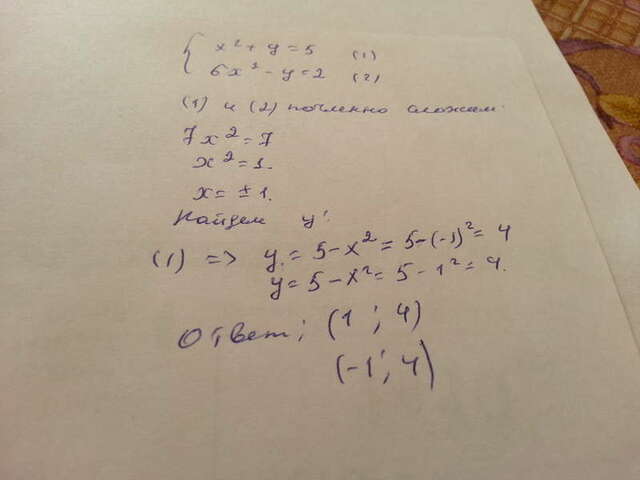 x² + y = 5 (1)
6x² - y = 2 (2)
(1) и (2) почленно сложам.
7x² = 7
x² = 1.
x = ± 1.
Найдем y:
(1) => y = 5 - x² = 5 - (-1)² = 4
y = 5 - x² = 5 - 1² = 4.
Ответ: (1; 4)
(-1; 4)